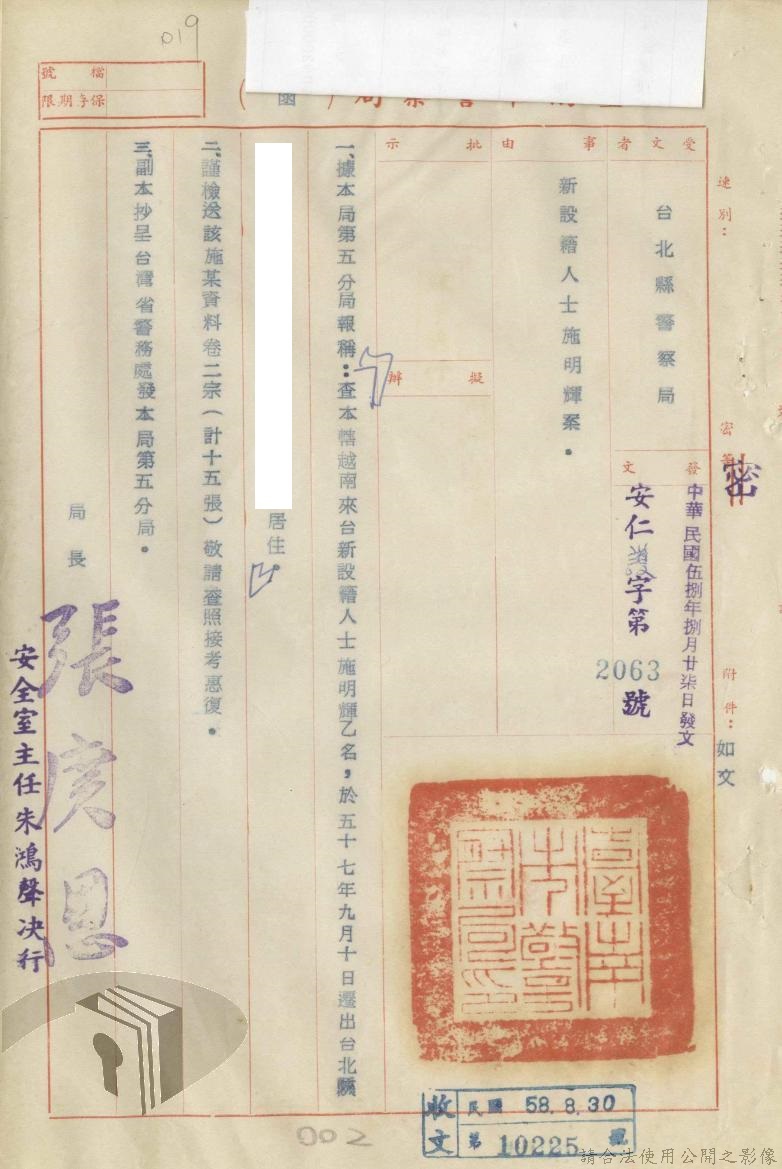 019
檔號
保存期限
局(函)
受文者
台北縣警察局
事由
新設籍人士施明輝案。
批示
擬辦
速別：
密等
密
附件：如文
發文
中華民國伍捌年捌月廿柒日發文
安仁字第2063號
一、據本局第五分局報稱：查本轄越南來台新設籍人士施明輝乙名，於五十七年九月十日遷出台北縣
居住。
二、謹檢送該施某資料卷二宗（計十五張）敬請查照接考惠復。
三、副本抄呈台灣省警務處發本局第五分局。
局長
張庚恩
安全室主任朱鴻聲決行
收文
民國 58.8.30
第 10225 號
002
請合法使用公開之影像